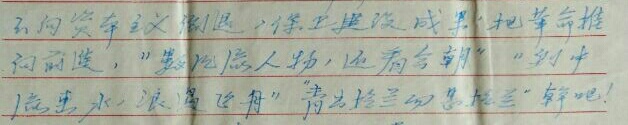 不向资本主义倒退,保卫建设成果,把革命推
向前进,"数风流人物,还看今朝" "到中
流击水,浪遏飞舟" "青出于兰而甚于兰"幹吧!